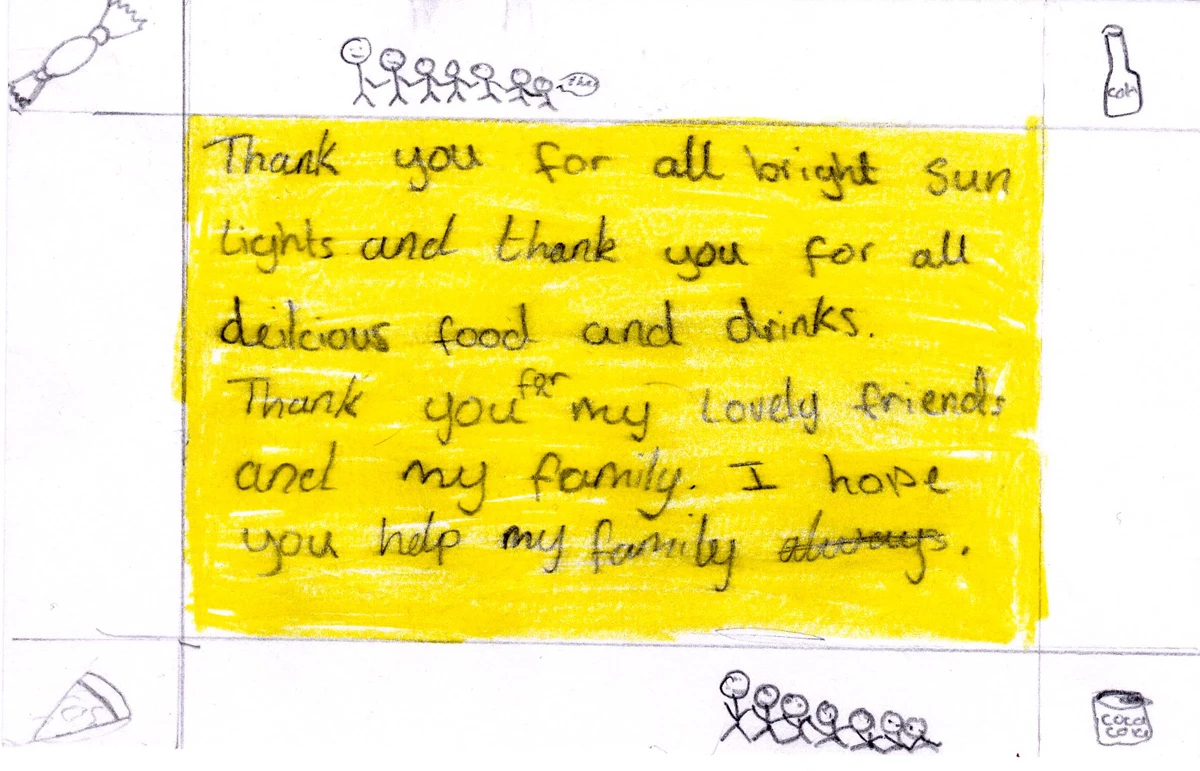 Thank you for all bright sun
Lights and thank you for all
deilcious food and drinks.
Thank you for my Lovely friends
and my family. I hope
you help my family always.
coca